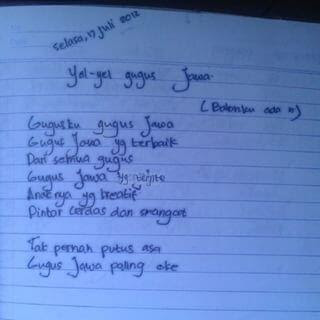 Selasa, 17 Juli 2012
Yel-yel gugus Jawa
(Balonku ada 5)
Gugusku gugus Jawa
Gugus Jawa yg terbaik
Dari semua gugus
Gugus Jawa yg
Anaknya yg kreatif
Pintar cerdas dan smangat
Tak pernah putus asa
Gugus Jawa paling oke